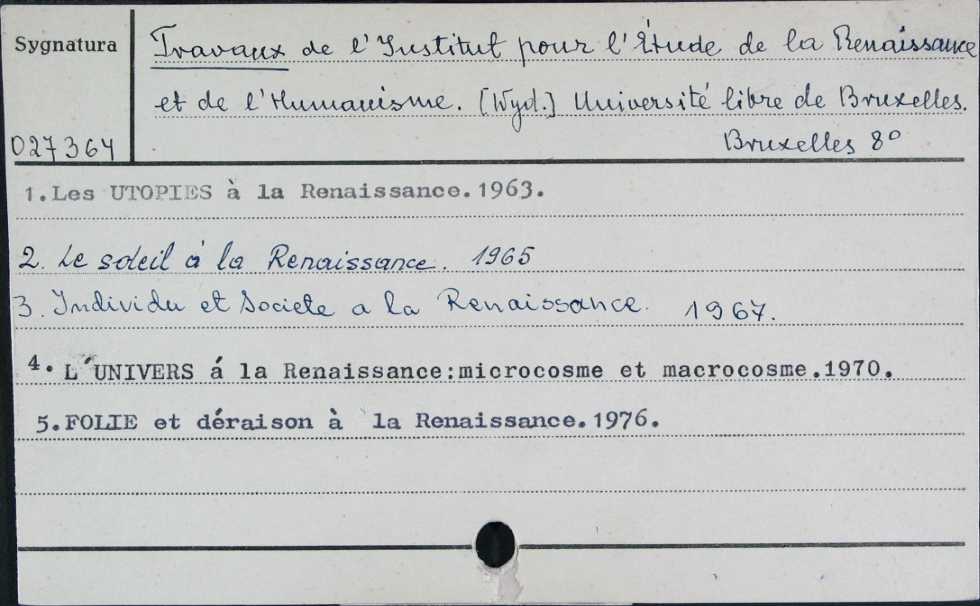 Sygnatura
Travaux de l'Institut pour l'Étude de la Renaissance
et de l'Humanisme. [Wyd.] Université libre de Bruxelles.
027364
Bruxelles 8°
1.Les UTOPIES à la Renaissance.1963.
2. Le soleil à la Renaissance. 1965
3. Individu et Societe a la Renaissance. 1967.
4. L'UNIVERS á la Renaissance:microcosme et macrocosme.1970.
5.FOLIE et déraison à la Renaissance.1976.